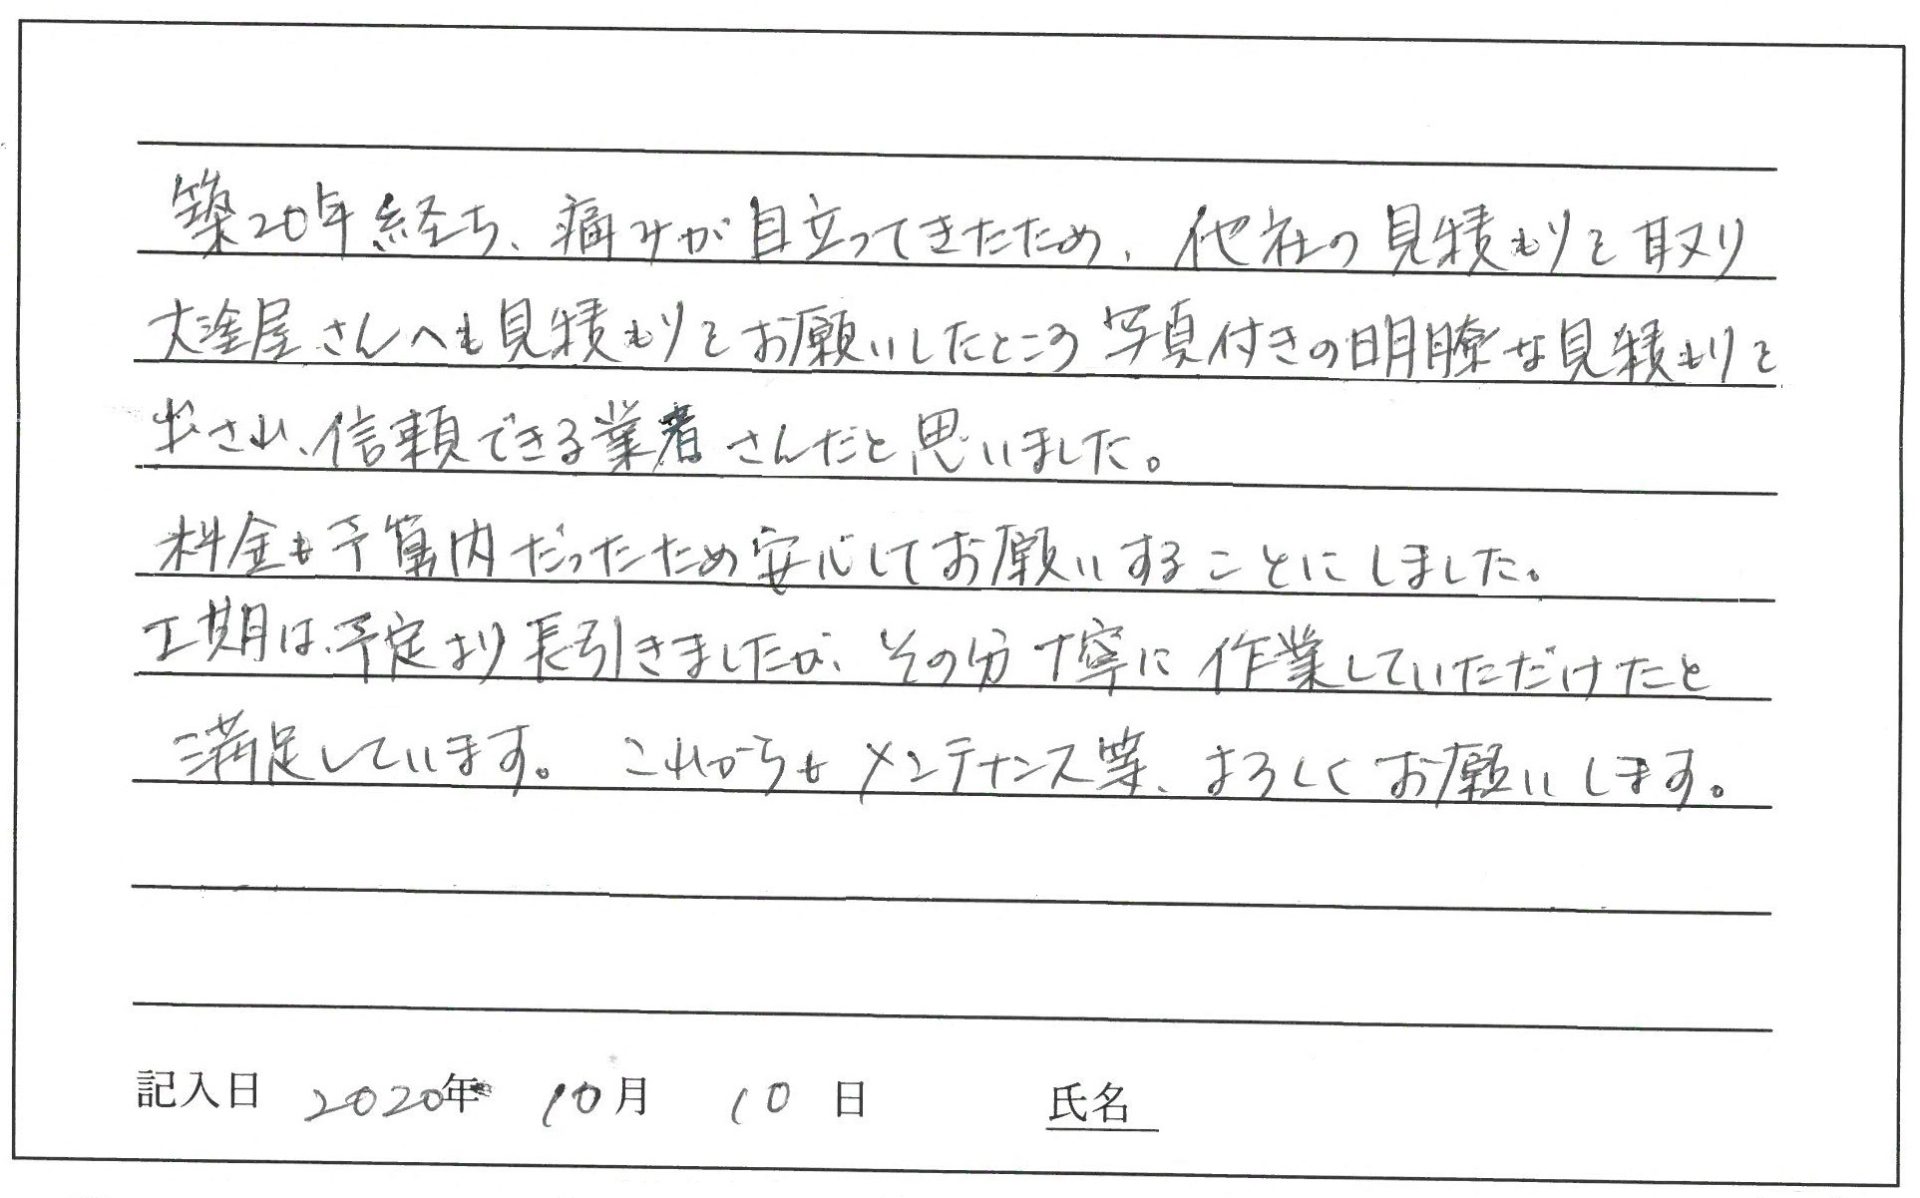 築20年経ち、痛みが目立ってきたため、他社の見積もりを取り
大塗屋さんへも見積もりをお願いしたところ写真付きの明瞭な見積もりを
出され、信頼できる業者さんだと思いました。
料金も予算内だったため安心してお願いすることにしました。
工期は、予定より長引きましたが、その分丁寧に作業していただけたと
満足しています。これからもメンテナンス等、よろしくお願いします。
記入日 2020年 10月 10日 氏名